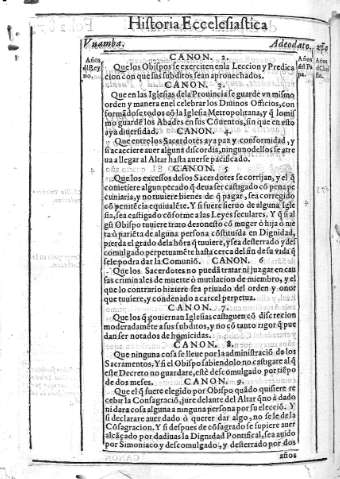 Historia Eccclesiastica
Vuamba.
Adeodato.
Años del Rey no.
Años del Papa.
CANON. 2.
Que los Obispos se exerciten en la Leccion y Predica
cion con que sus subditos sean aprouechados.
CANON. 3.
Que en las Iglesias dela Prouincia se guarde vn mismo
orden y manera en el celebrar los Diuinos Officios, con
formãdose cõ la Iglesia Metropolitana, y q̃ lo mis
mo guardẽ los Abades en sus Cõuentos, sin que en esto
aya diuersidad. CANON. 4.
Que entre los Sacerdotes aya paz y conformidad, y
si acaeciere auer alguna discordia, ninguno dellos se atre
ua a llegar al Altar hasta auerse pacificado.
CANON. 5
Que los excessos de los Sacerdotes se corrijan, y el q̃
cometiere algun pecado q̃ deua ser castigado cõ pena pe
cuniaria, y no tuuiere bienes de q̃ pagar, sea corregido
cõ penitẽcia equiualẽte. Y si fuere sieruo de alguna Igle
sia, sea castigado cõforme a las Leyes seculares. Y q̃ si al
gũ Obispo tuuiere trato deronesto cõ muger ò hija ò nie
ta ò pariẽta de alguna persona cõstituida en Dignidad,
pierda el grado de la hõra q̃ tuuiere, y sea desterrado y des
comulgado perpetuamẽte hasta cerca del fin de su vida q̃
sele podra dar la Comuniõ. CANON. 6
Que los Sacerdotes no puedã tratar ni juzgar en cau
sas criminales de muerte ò mutilacion de miembro, y el
que lo contrario hiziere sea priuado del orden y onor
que tuuiere, y condenado a carcel perpetua.
CANON. 7.
Que los q̃ gouiernan Iglesias castiguen cõ discrecion
moderadamẽte a sus subditos, y no cõ tanto rigor q̃ pue
dan ser notados de homicidas.
CANON. 8.
Que ninguna cosa se lleue por la administraciõ de los
Sacramentos. Y si el Obispo sabiendolo no castigare al q̃
este Decreto no guardare, estè descomulgado por tiẽpo
de dos meses. CANON. 9.
Que el q̃ fuere elegido por Obispo quãdo quisiere re
cebir la Consagraciõ, jure delante del Altar q̃ no à dado
ni dara cosa alguna a ninguna persona por su elecciõ. Y
si declarare auer dado ò querer dar algo, no se le de la
Cõsagracion. Y si despues de cõsagrado se supiere auer
alcãçado por dadiuas la Dignidad Pontifical, sea auido
por Simoniaco y descomulgado, y desterrado por dos
años